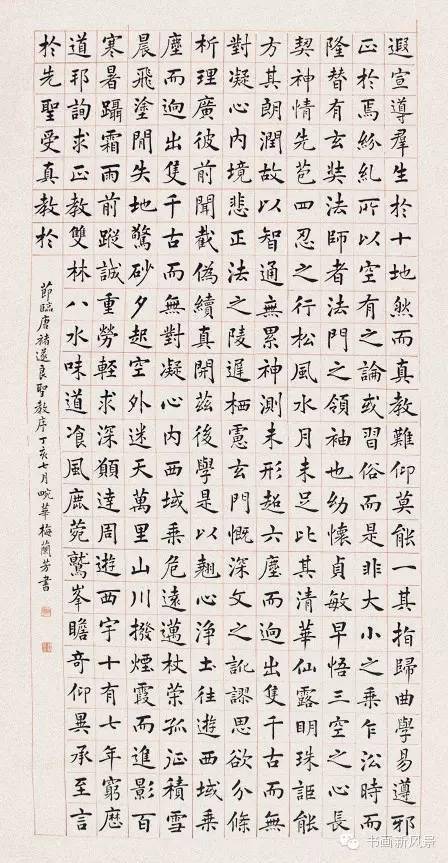 遐宣導羣生於十地然而真教難仰莫能一其指歸曲學易遵邪
正於焉紛糺所以空有之論或習俗而是非大小之乘乍沿時而
隆替有玄奘法師者法門之領袖也幼懷貞敏早悟三空之心長
契神情先苞四忍之行松風水月未足比其清華仙露明珠詎能
方其朗潤故以智通無累神測未形超六塵而迥出隻千古而無
對凝心内境悲正法之陵遲栖慮玄門慨深文之訛謬思欲分條
析理廣彼前聞截偽續真開茲後學是以翹心淨土往遊西域乘
塵而迥出隻千古而無對凝心内西域乘危遠邁杖策孤征積雪
晨飛塗閒失地驚砂夕起空外迷天萬里山川撥煙霞而進影百
寒暑躡霜雨前蹤誠重勞輕求深願達周遊西宇十有七年窮歷
道邦詢求正教雙林八水味道飡風鹿菀鷲峯瞻奇仰異承至言
於先聖受真教於
節臨唐褚遂良聖教序丁亥七月畹華梅蘭芳書
书画新风景